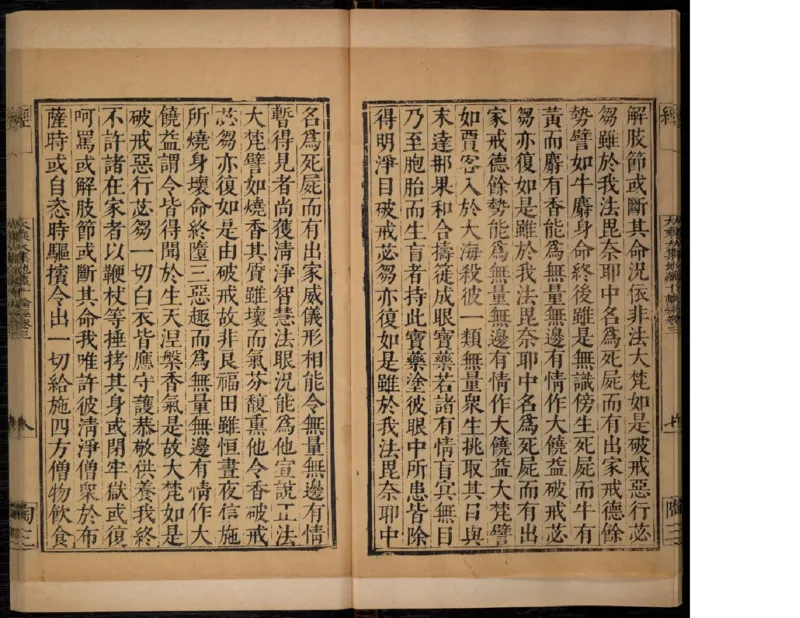 解肢節或斷其命況依非法大梵如是破戒惡行苾
芻雖於我法毘奈耶中名爲死屍而有出家戒德餘
勢譬如牛麝身命終後雖是無識傍生死屍而牛有
黃而麝有香能爲無量無邊有情作大饒益破戒苾
芻亦復如是雖於我法毘奈耶中名爲死屍而有出
家戒德餘勢能爲無量無邊有情作大饒益大梵譬
如賈客入於大海殺彼一類無量衆生挑取其目與
末達那果和合擣簁成眼寶藥若諸有情盲冥無目
乃至胞胎而生盲者持此寶藥塗彼眼中所患皆除
得明淨目破戒苾芻亦復如是雖於我法毘奈耶中
名爲死屍而有出家威儀形相能令無量無邊有情
暫得見者尚獲清淨智慧法眼況能爲他宣說正法
大梵譬如燒香其質雖壞而氣芬馥熏他令香破戒
苾芻亦復如是由破戒故非良福田雖恒晝夜信施
所燒身壞命終墮三惡趣而爲無量無邊有情作大
饒益謂令皆得聞於生天涅槃香氣是故大梵如是
破戒惡行苾芻一切白衣皆應守護恭敬供養我終
不許諸在家者以鞭杖等捶拷其身或閉牢獄或復
呵罵或解肢節或斷其命我唯許彼清淨僧衆於布
薩時或自恣時驅擯令出一切給施四方僧物飲食